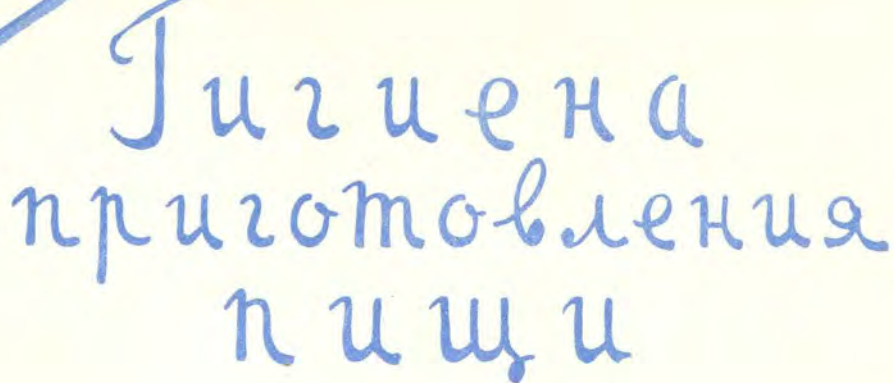 Гигиена
приготовления
пищи